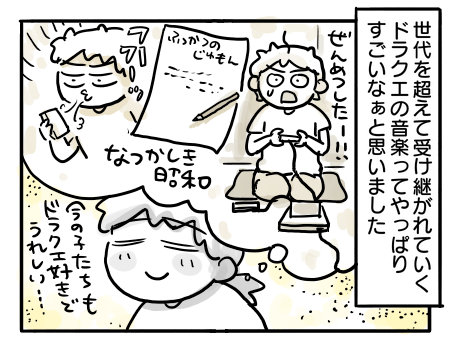 世代を超えて受け継がれていく
ドラクエの音楽ってやっぱり
すごいなぁと思いました
ぜんめつしたー!!
ふっかつの
じゅもん
フーフー
なつかしき
昭和
今の子たちも
ドラクエ好きで
うれしい…